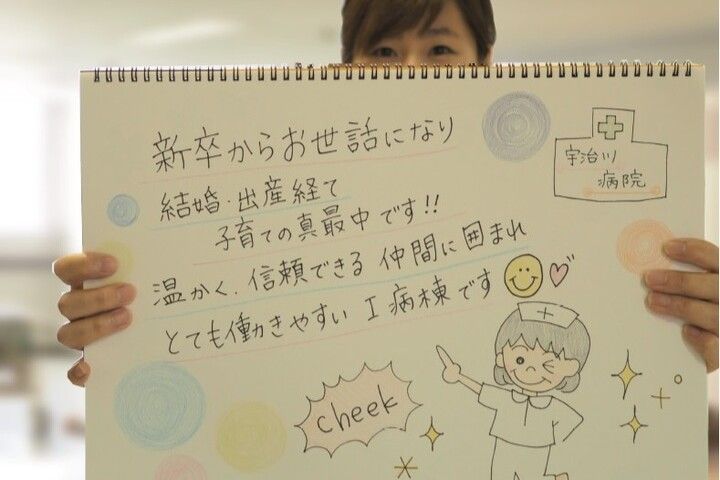 新卒からお世話になり
結婚・出産経て
子育ての真最中です!!
温かく、信頼できる仲間に囲まれ
とても働きやすい I 病棟です
宇治川
病院
cheek